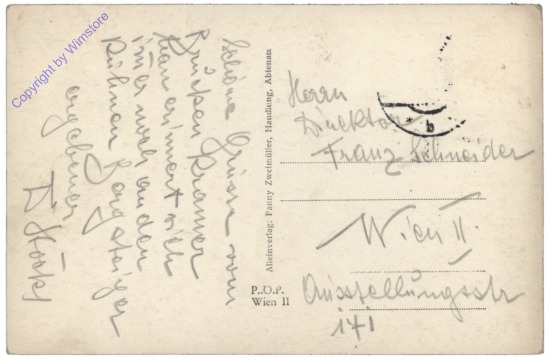 Schöne Grüsse vom
Brucken Kramer
man erinnert sich
immer noch an den
kühnen Bergsteiger
ergebener
Herrn
Direktor
Franz Schneider
Wien II.
Ausstellungsstr
171
Alleinverlag: Fanny Zweimüller, Handlung, Abtenau
P.O.P.
Wien II
b
Copyright by Wimstore